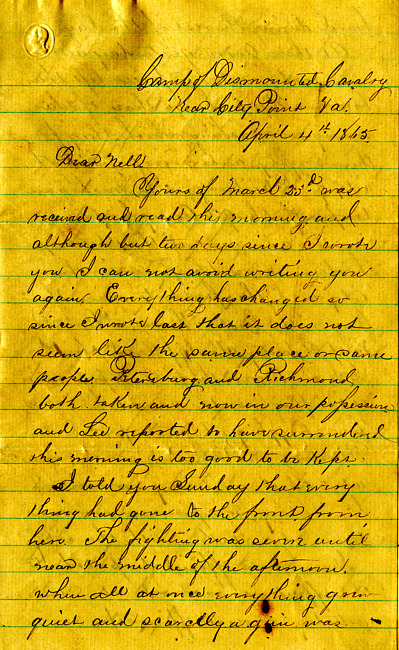 Camp of Dismounted Cavalry
Near City Point Va.
April 4th 1865.
Dear Nell
Yours of March 23d was
received and read this morning, and
although but two days since I wrote
you I can not avoid writing you
again. Everything has changed so
since I wrote last that it does not
seem like the same place or same
people. Petersburg and Richmond
both taken and now in our possession
and Lee reported to have surrendered
this morning is too good to be kept.
I told you Sunday that every
thing had gone to the front from
here. The fighting was severe until
near the middle of the afternoon,
when all at once everything grew
quiet and scarcely a gun was